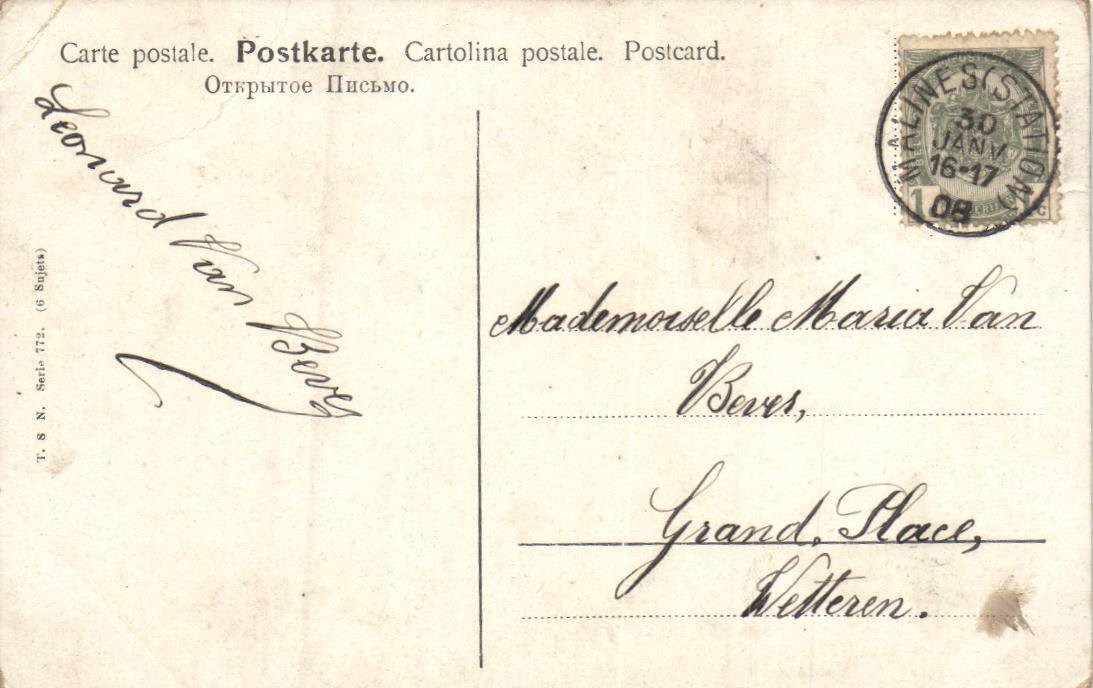 Carte postale. Postkarte. Cartolina postale. Postcard.
Открытое Письмо.
MALINES (STATION)
30
JANV
16-17
08
1 C
Leonard Van Bever
T. S N. Serie 772. (6 Sujets)
Mademoiselle Maria Van
Bever,
Grand, Place,
Wetteren.